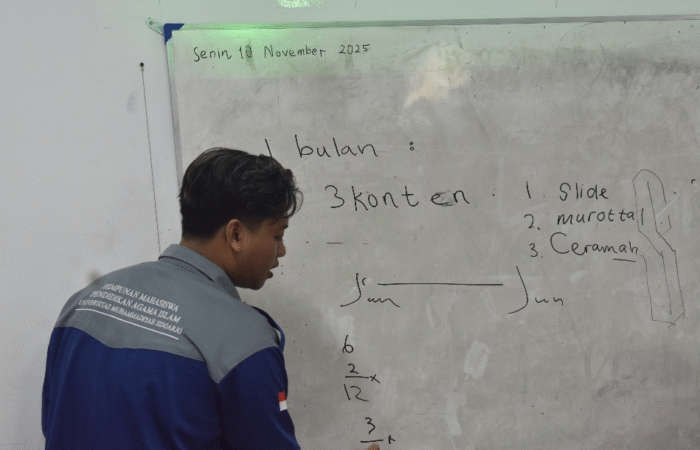 Senin 10 November 2025
1 bulan :
3 konten : 1. Slide
2. murottal
3. Ceramah
Jan ——— Jun
6
2 ×
12
3 ×
HIMPUNAN MAHASISWA
PENDIDIKAN AGAMA ISLAM
UNIVERSITAS MUHAMMADIYAH SIDOARJO